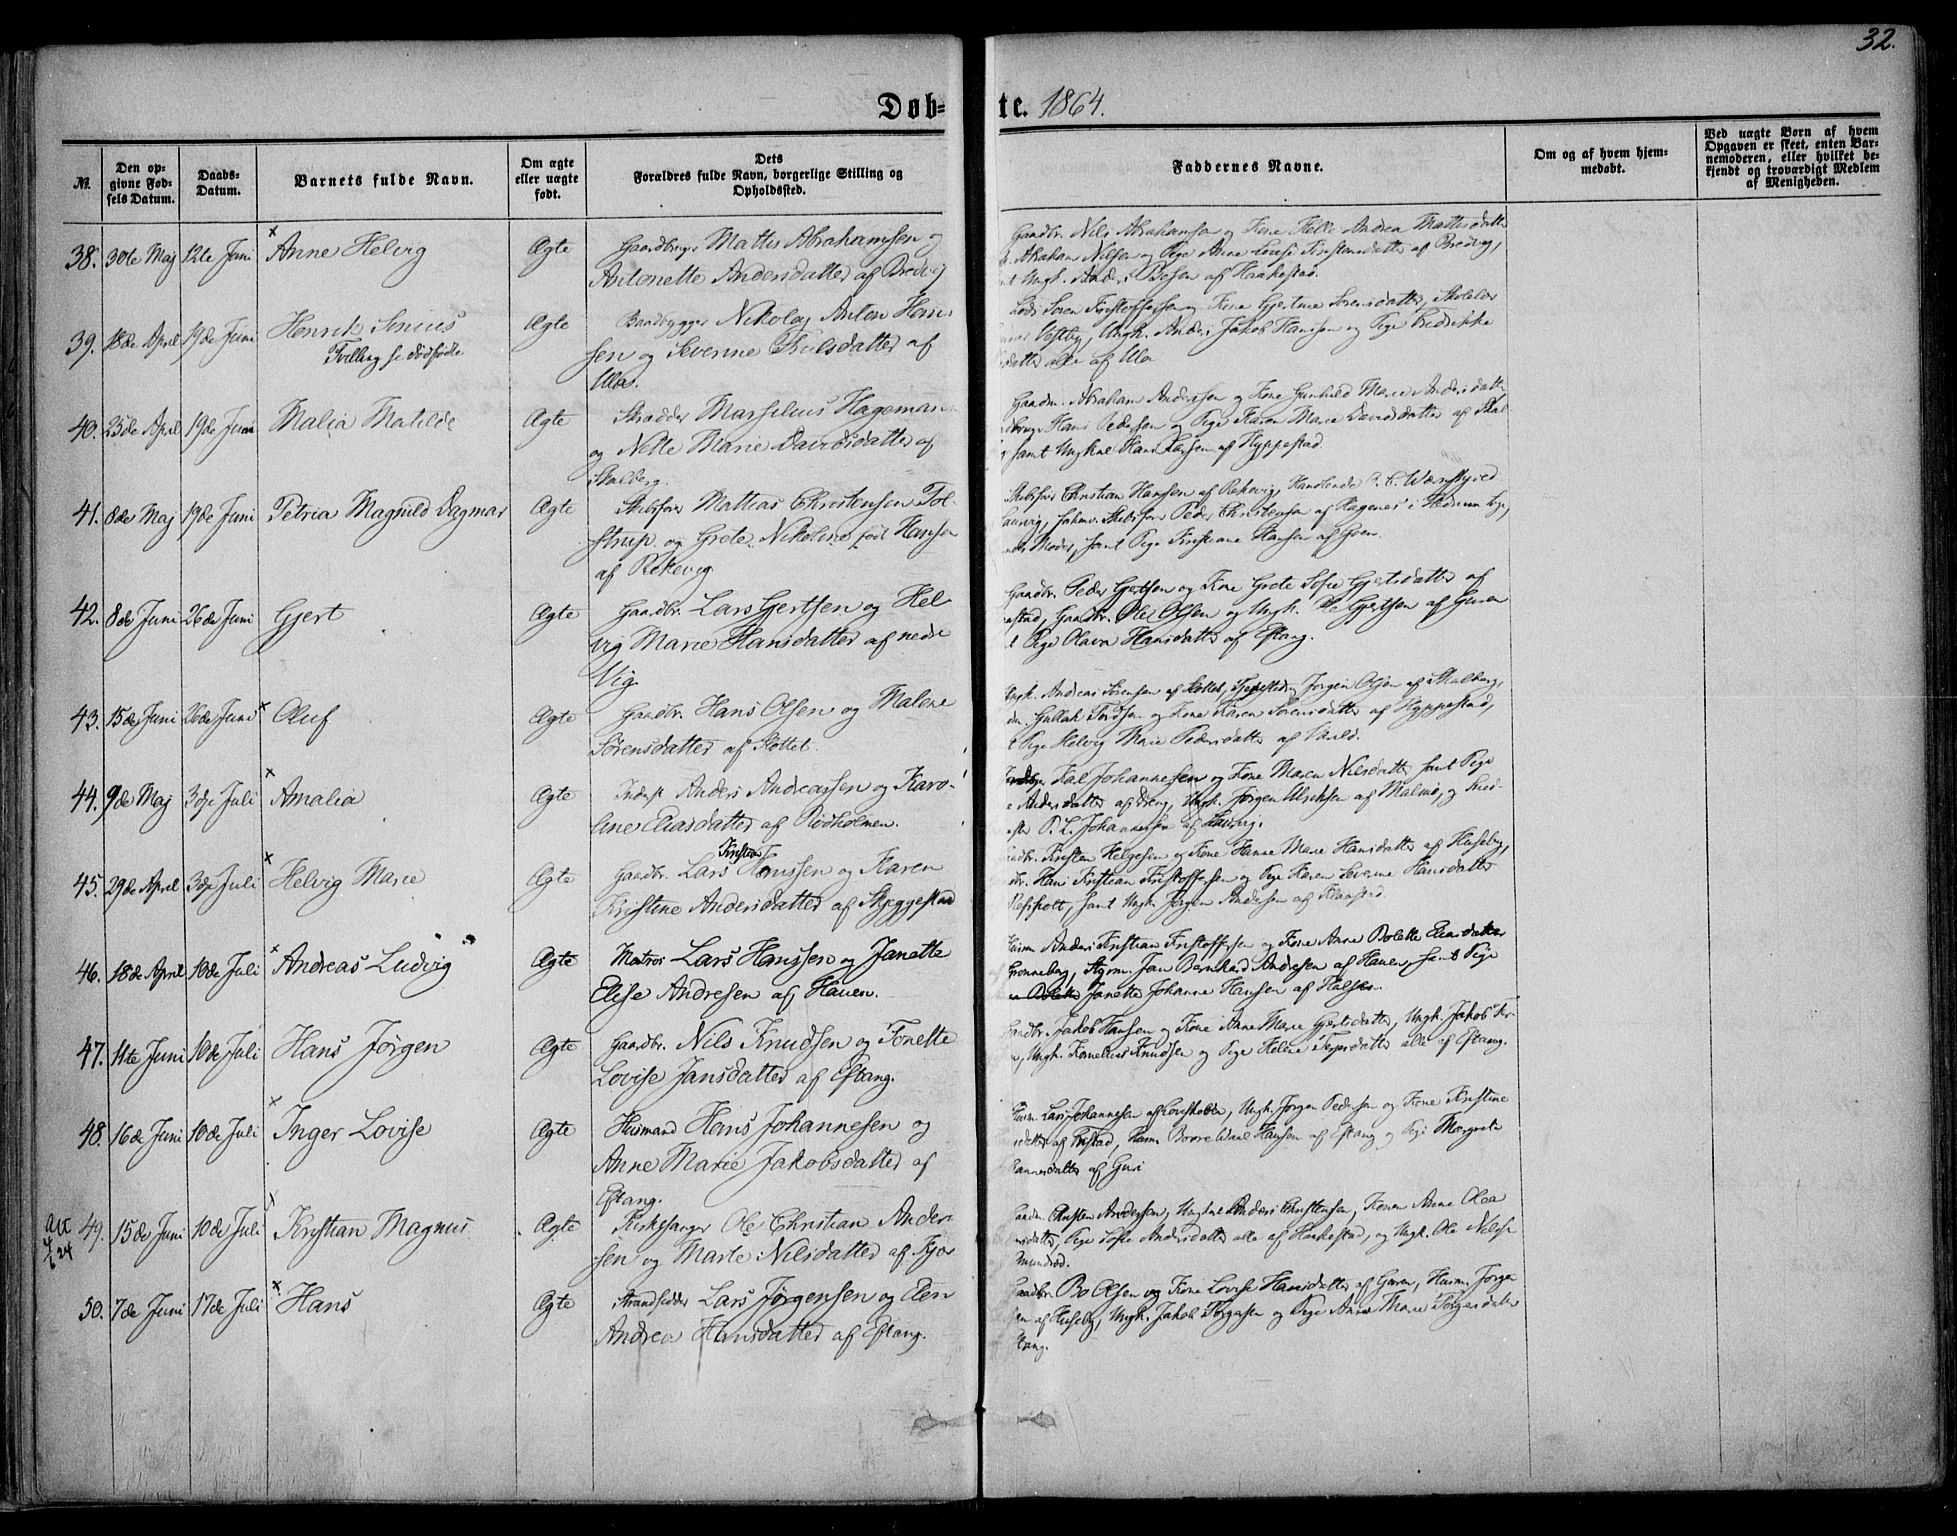 32.
Døbte. 1864.
№.
Den opgivne Fødsels Datum.
Daabs-Datum.
Barnets fulde Navn.
Om ægte eller uægte født.
Dets Forældres fulde Navn, borgerlige Stilling og Opholdssted.
Faddernes Navne.
Om og af hvem hjemmedøbt.
Ved uægte Børn af hvem Opgaven er skeet, enten Barnemoderen, eller hvilket bekjendt og troværdigt Medlem af Menigheden.
38. 30te Maj 12te Juni Anne Helvig Ægte Gaardbruger Mattis Abrahamsen og
Antonette Andersdatter af Bredvig
Gaardbr. Nils Abrahamsen og Kone Helle Andrea Mattisdatter
Abraham Nilsen og Pige Anne Lovise Kristensdatter af Bredvig,
Ungk. Anders Besen af Haakestad.
39. 18de April 19de Juni Henrik Senius Ægte Baadbygger Nikolay Anton Han-
Tvilling se dødfødte
sen og Severine Truls­datter af
Ula.
Søren Kristoffersen og Kone Gjertine Sorensdatter,
Vestby, Ungk. Anders Jakob Hanssen og Pige Fredrikke
datter alle af Ula
40. 23de April 19de Juni Malia Matilde Ægte Skrædder Marselius Hageman
og Nelle Marie Davidsdatter af
Skalberg.
Gaardm. Abraham Anderssen og Kone Gunhild Marie Andersdatter
Hans Pedersen og Pige Karen Marie Davidsdatter af Skal-
samt Ungkarl Hans Larsen af Hyppestad.
41. 8de Maj 19de Juni Petria Magnild Dagmar Ægte Skibsfører Mattias Christensen Tol-
strup og Grete Nikoline født Hansen
af Rekevig
Skibsfør. Christian Hansen af Rekevig, Handlende
Laurvig, Skibsfører Peder Christensen af Ragenes i Hedrum
Moder, samt Pige Kristiane Hansen af Goen.
42. 8de Juni 26de Juni Gjert Ægte Gaardbr. Lars Gjertsen og Hel-
vig Marie Hansdatter af nedre
Vig
Gaardbr. Peder Gjertsen og Kone Grete Sofie Gjertsdatter af
Gaardbr. Ole Olsen og Ungk. Ole Gjertsen af Guren
Pige Olava Hansdatter af Eftang.
43. 15de Juni 26de Juni Oluf Ægte Gaardbr. Hans Olsen og Malene
Sørensdatter af Slottet.
Ungk. Andreas Sørensen af Slottet, Jørgen Olsen af Skalberg,
Gullak Tordsen og Kone Karen Sorensdatter af Hyppestad,
Pige Helvig Marie Pedersdatter af
44. 9de Maj 3dje Juli Amalia Ægte Inderst Anders Andreassen og Karo-
line Eliasdatter af Rødholmen.
Johannesen og Kone Maren Nilsdatter samt Pige
Andersdatter af Ungk. Jørgen Ulriksen af Malmø, og
P. L. Johannesen af Laurvig.
45. 29de April 3dje Juli Helvig Marie Ægte Gaardbr. Lars Kristian Hanssen og Karen
Kristine Andersdatter af Skjeggestad
Kristen Helgesen og Kone Hanne Marie Hansdatter af Huseby,
Hans Kristian Kristoffersen og Pige Karen Severine Hansdatter
samt Ungk. Jørgen Andersen af Klaastad.
46. 18de April 10de Juli Andreas Ludvig Ægte Matros Lars Hanssen og Janette
Elise Andresen af Haven.
Husm Anders Kristian Kristoffersen og Kone Anne Bolette Eliasdatter
Grønneberg, Styrm. Jan Bernhard Andresen af Haven, samt Pige
Janette Johanne Hansen af
47. 11te Juni 10de Juli Hans Jørgen Ægte Gaardbr. Nils Knudsen og Tonette
Lovise Jansdatter af Eftang.
Gaardbr. Jakob Hansen og Kone Anne Marie Gjertsdatter, Ungk. Jakob
Ungk. Kornelius Knudsen og Pige Helene datter alle af Eftang.
48. 16de Juni 10de Juli Inger Lovise Ægte Husmand Hans Johannesen og
Anne Marie Jakobsdatter af
Eftang.
Husm. Lars Johannesen af Ungk. Jørgen Pedersen og Kone Kristine
datter af Hansen af Eftang og Pige Margrete
af Guri
49. 15de Juni 10de Juli Kristian Magnus Ægte Kirkesanger Ole Christian Ander-
sen og Marte Nilsdatter af Kjør
Kristen Andersen, Ungkarl Anders Christensen, Konen Anne Olea
Pige Sofie Andersdatter alle af Haakestad, og Ungk. Ole Nilsen
50. 7de Juni 17de Juli Hans Ægte Strandsidder Lars Jørgensen og Elen
Andrea Hansdatter af Eftang.
Gaardbr. Bo Olsen og Kone Lovise Hansdatter af Guren, Husm. Jørgen
af Huseby, Ungk. Jakob Jørgensen og Pige Anne Marie Jørgensdatter